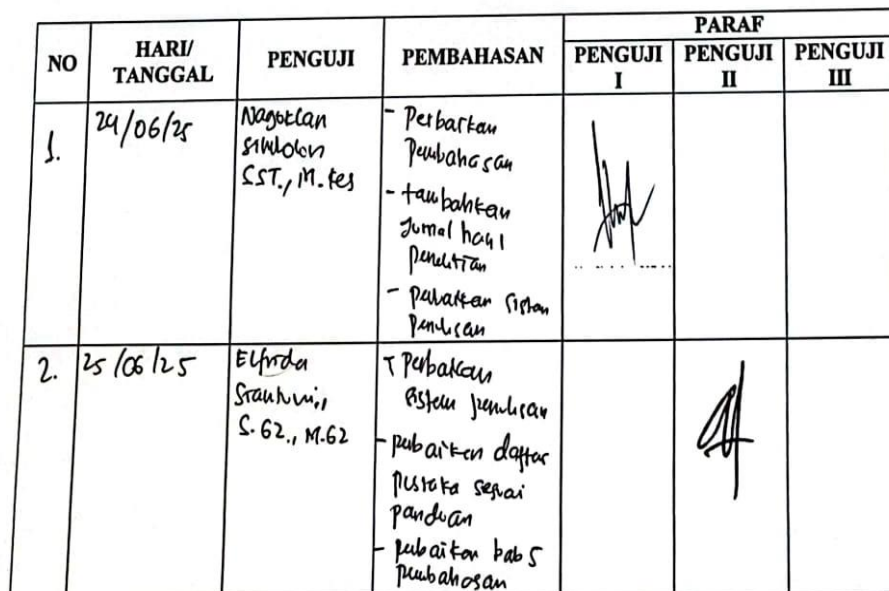 NO
HARI/
TANGGAL
PENGUJI
PEMBAHASAN
PARAF
PENGUJI
I
PENGUJI
II
PENGUJI
III
1.
24/06/25
SST., M.Kes
- Perbaikan
Pembahasan
- tambahkan
Jurnal hasil
penelitian
- perbaikan sistem
penulisan
2.
25/06/25
Elfrida
S.GZ., M.GZ
- Perbaikan
sistem penulisan
- perbaikan daftar
pustaka sesuai
panduan
- perbaikan bab 5
pembahasan